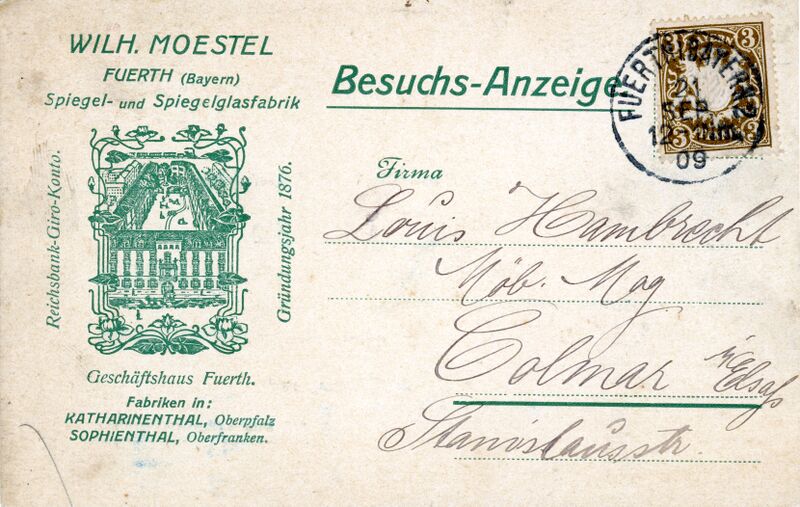 WILH. MOESTEL
FUERTH (Bayern)
Spiegel- und Spiegelglasfabrik
Reichsbank-Giro-Konto.
Gründungsjahr 1876.
Geschäftshaus Fuerth.
Fabriken in:
KATHARINENTHAL, Oberpfalz
SOPHIENTHAL, Oberfranken.
Besuchs-Anzeige
3 3
3 3
FUERTH (BAYERN) 2
21
SEP
12-1
09
Firma
Louis Hambrecht
Möb. Mag
Colmar i/Elsaß
Stanislausstr.